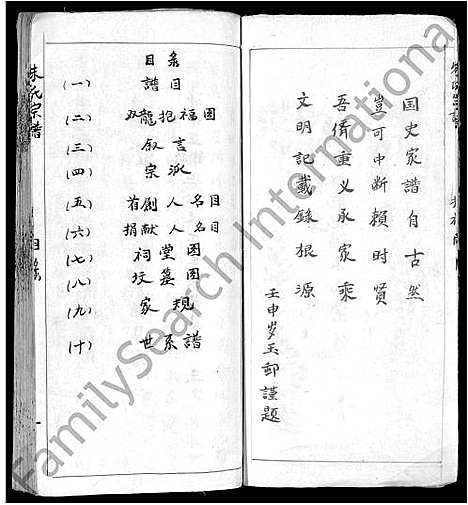 国史家譜自古然
豈可中断賴时贤
吾儕重义承家乘
文明記載錄根源
壬申岁玉卸謹題
目彔
(一) 譜目
(二) 双龍抱福图
(三) 叙言
(四) 宗派
(五) 首創人名目
(六) 捐献人名目
(七) 祠堂图
(八) 坟墓图
(九) 家規
(十) 世系譜
朱氏宗譜
FamilySearch International